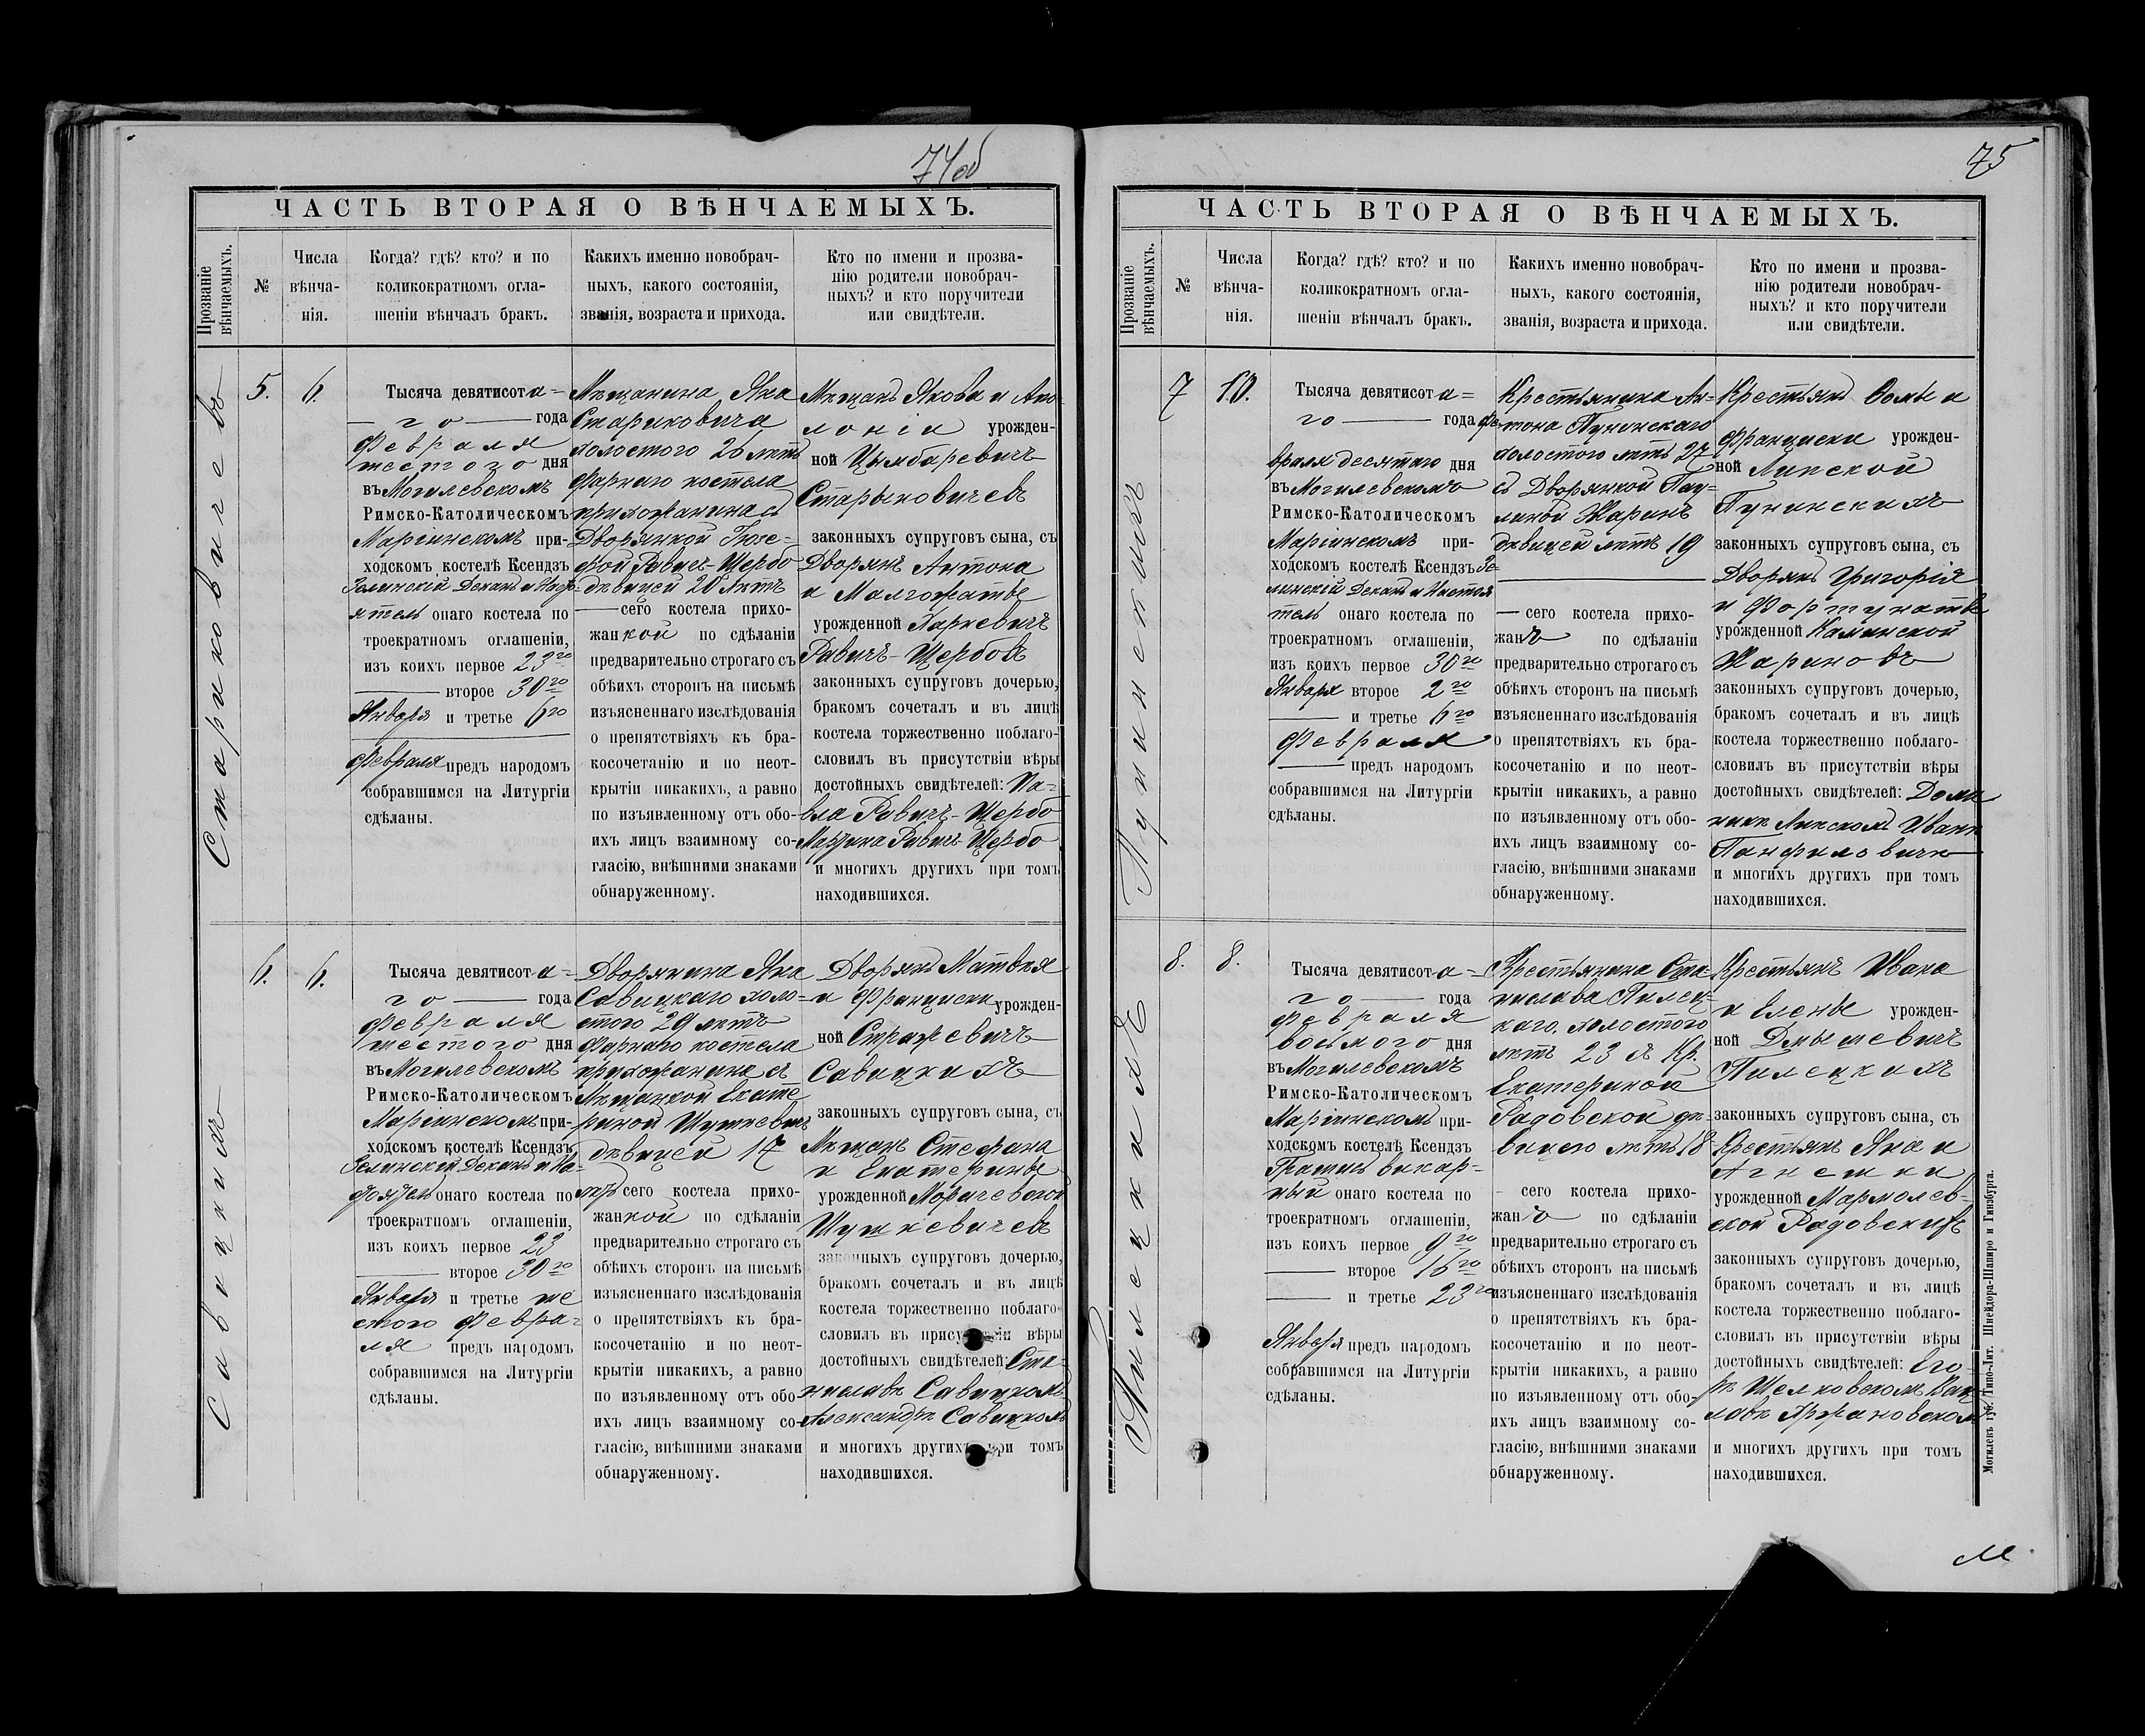 74об
ЧАСТЬ ВТОРАЯ О ВѢНЧАЕМЫХЪ.
Прозваніе вѣнчаемыхъ.
№
Числа вѣнча-
нія.
Когда? гдѣ? кто? и по
коликократномъ огла-
шеніи вѣнчалъ бракъ.
Какихъ именно новобрач-
ныхъ, какого состоянія,
званія, возраста и прихода.
Кто по имени и прозва-
нію родители новобрач-
ныхъ? и кто поручители
или свидѣтели.
Стариковичевъ
5.
6.
Тысяча девятисот-а=
го года
Февраля
шестого дня
въ Могилевскомъ
Римско-Католическомъ
Маріинскомъ при-
ходскомъ костелѣ Ксендзъ
Зелинскій Деканъ и Насто-
ятель онаго костела по
троекратномъ оглашеніи,
изъ коихъ первое 23го
второе 30го
Января и третье 6го
Февраля предъ народомъ
собравшимся на Литургіи
сдѣланы.
Мѣщанина Яна
Стариковича
холостого 26 лѣтъ
Фарнаго костела
прихожанина съ
Дворянкой Іозе-
фой Равичъ-Щербо
дѣвицей 20 лѣтъ
сего костела прихо-
жанкой по сдѣланіи
предварительно строгаго съ
обѣихъ сторонъ на письмѣ
изъясненнаго изслѣдованія
о препятствіяхъ къ бра-
косочетанію и по неот-
крытіи никакихъ, а равно
по изъявленному отъ обо-
ихъ лицъ взаимному со-
гласію, внѣшними знаками
обнаруженному.
Мѣщанъ Якова и Апо-
лоніи урожден-
ной Цымбаревичъ
Старыковичевъ
законныхъ супруговъ сына, съ
Дворянъ Антона
и Малгожаты
урожденной Харкевичъ
Равичъ-Щербовъ
законныхъ супруговъ дочерью,
бракомъ сочеталъ и въ лицѣ
костела торжественно поблаго-
словилъ въ присутствіи вѣры
достойныхъ свидѣтелей: Па-
вла Равичъ-Щербо
Мартина Равичъ-Щербо
и многихъ другихъ при томъ
находившихся.
Савицкихъ
6.
6.
Тысяча девятисот-а=
го года
Февраля
шестого дня
въ Могилевскомъ
Римско-Католическомъ
Маріинскомъ при-
ходскомъ костелѣ Ксендзъ
Зелинскій Деканъ и На-
стоятель онаго костела по
троекратномъ оглашеніи,
изъ коихъ первое 23
второе 30го
Января и третье ше
стого Февра-
ля предъ народомъ
собравшимся на Литургіи
сдѣланы.
Дворянина Яна
Савицкаго холо-
стого 29 лѣтъ
Фарнаго костела
прихожанина съ
Мѣщанкой Екате
риной Шушкевичъ
дѣвицей 17
лѣтъ сего костела прихо-
жанкой по сдѣланіи
предварительно строгаго съ
обѣихъ сторонъ на письмѣ
изъясненнаго изслѣдованія
о препятствіяхъ къ бра-
косочетанію и по неот-
крытіи никакихъ, а равно
по изъявленному отъ обо-
ихъ лицъ взаимному со-
гласію, внѣшними знаками
обнаруженному.
Дворянъ Матвѣя
и Франциски урожден-
ной Стражевичъ
Савицкихъ
законныхъ супруговъ сына, съ
Мѣщанъ Стефана
и Екатерины
урожденной
Шушкевичевъ
законныхъ супруговъ дочерью,
бракомъ сочеталъ и въ лицѣ
костела торжественно поблаго-
словилъ въ присутствіи вѣры
достойныхъ свидѣтелей: Ста-
ниславѣ Савицкомъ
Александрѣ Савицкомъ
и многихъ другихъ при томъ
находившихся.
75
ЧАСТЬ ВТОРАЯ О ВѢНЧАЕМЫХЪ.
Прозваніе вѣнчаемыхъ.
№
Числа вѣнча-
нія.
Когда? гдѣ? кто? и по
коликократномъ огла-
шеніи вѣнчалъ бракъ.
Какихъ именно новобрач-
ныхъ, какого состоянія,
званія, возраста и прихода.
Кто по имени и прозва-
нію родители новобрач-
ныхъ? и кто поручители
или свидѣтели.
Пунинскихъ
7
10.
Тысяча девятисот-а=
го года Фе-
враля десятаго дня
въ Могилевскомъ
Римско-Католическомъ
Маріинскомъ при-
ходскомъ костелѣ Ксендзъ Зе-
линскій Деканъ и Настоя
тель онаго костела по
троекратномъ оглашеніи,
изъ коихъ первое 30го
Января второе 2го
и третье 6го
Февраля
предъ народомъ
собравшимся на Литургіи
сдѣланы.
Крестьянина Ан-
тона Пунинскаго
холостого лѣтъ 27
съ Дворянкой Пау-
линой Жаринъ
дѣвицей лѣтъ 19
сего костела прихо-
жанъ по сдѣланіи
предварительно строгаго съ
обѣихъ сторонъ на письмѣ
изъясненнаго изслѣдованія
о препятствіяхъ къ бра-
косочетанію и по неот-
крытіи никакихъ, а равно
по изъявленному отъ обо-
ихъ лицъ взаимному со-
гласію, внѣшними знаками
обнаруженному.
Крестьянъ Ѳомы и
Франциски урожден-
ной Липской
Пунинскихъ
законныхъ супруговъ сына, съ
Дворянъ Григорія
и Фортунаты
урожденной Каминской
Жариновъ
законныхъ супруговъ дочерью,
бракомъ сочеталъ и въ лицѣ
костела торжественно поблаго-
словилъ въ присутствіи вѣры
достойныхъ свидѣтелей: Доми
никѣ Липскомъ Иванѣ
Панфиловичѣ
и многихъ другихъ при томъ
находившихся.
Пилецкихъ
8.
8.
Тысяча девятисот-а=
го года
Февраля
восьмого дня
въ Могилевскомъ
Римско-Католическомъ
Маріинскомъ при-
ходскомъ костелѣ Ксендзъ
викар-
ный онаго костела по
троекратномъ оглашеніи,
изъ коихъ первое 9го
второе 16го
и третье 23го
Января предъ народомъ
собравшимся на Литургіи
сдѣланы.
Крестьянина Ста-
нислава Пилец-
каго, холостого
лѣтъ 23 съ Кр.
Екатериной
Радовской дѣ-
вицею лѣтъ 18
сего костела прихо-
жанъ по сдѣланіи
предварительно строгаго съ
обѣихъ сторонъ на письмѣ
изъясненнаго изслѣдованія
о препятствіяхъ къ бра-
косочетанію и по неот-
крытіи никакихъ, а равно
по изъявленному отъ обо-
ихъ лицъ взаимному со-
гласію, внѣшними знаками
обнаруженному.
Крестьянъ Ивана
и Елены урожден-
ной
Пилецкихъ
законныхъ супруговъ сына, съ
Крестьянъ Яна и
Агнешки
урожденной Мармолев-
ской Радовскихъ
законныхъ супруговъ дочерью,
бракомъ сочеталъ и въ лицѣ
костела торжественно поблаго-
словилъ въ присутствіи вѣры
достойныхъ свидѣтелей: Его-
рѣ Шелковскомъ Вац
лавѣ Хржановскомъ
и многихъ другихъ при томъ
находившихся.
Могилевъ губ. Типо-Лит. Шнейдора-Шапиро и Гинзбурга.